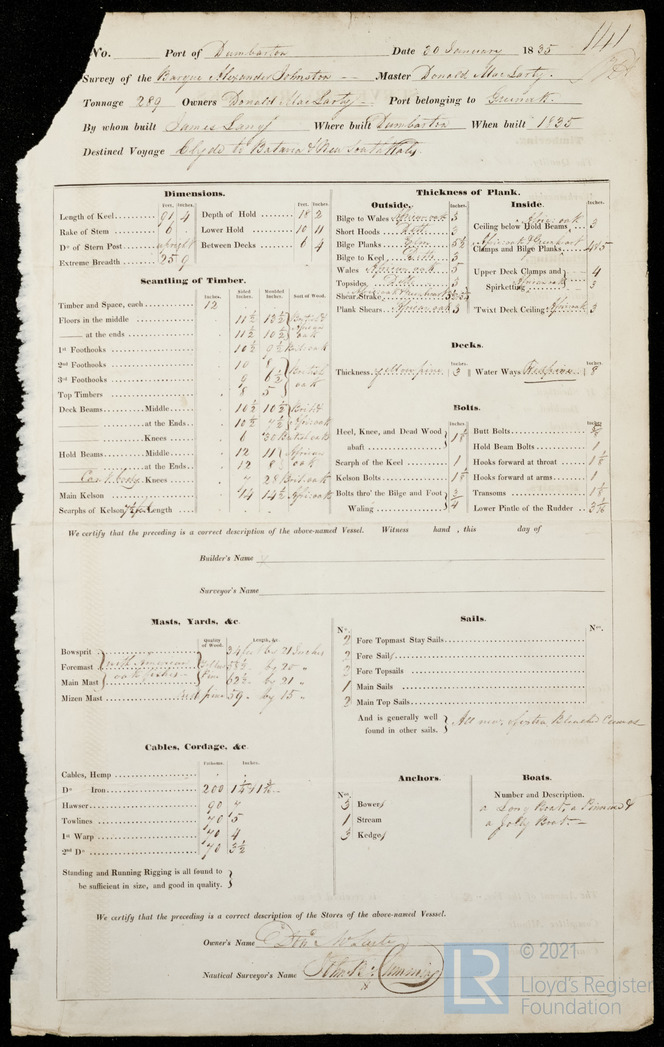 141
No. Port of Dumbarton Date 20 January 1835
Survey of the Barque Alexander Johnston Master Donald MacLarty.
Tonnage 289 Owners Donald MacLarty Port belonging to Greenock
By whom built James Lang Where built Dumbarton When built 1835
Destined Voyage Clyde to Batavia & New South Wales
Dimensions.
Feet. Inches. Feet. Inches.
Length of Keel 91 4 Depth of Hold 18 2
Rake of Stem 6 Lower Hold 10 11
Do of Stern Post upright Between Decks 6 4
Extreme Breadth 25 9
Scantling of Timber.
Inches. Sided Inches. Moulded Inches. Sort of Wood.
Timber and Space, each 12
Floors in the middle 11½ 12½ British
at the ends 11½ 10½ African oak
1st Foothooks 10½ 9½ Brit. oak
2nd Foothooks 10 8
3rd Foothooks 9 6½ British oak
Top Timbers 8 5
Deck Beams Middle 10½ 10½ Brit &
at the Ends 10½ 7½ Afric oak
Knees 6 30 British oak
Hold Beams Middle 12 11 African
at the Ends 12 8 oak
Knees 7 28 Brit. oak
Main Kelson 14 14½ Afric oak
Scarphs of Kelson Length
Thickness of Plank.
Outside. Inches. Inside. Inches.
Bilge to Wales African oak 3
Short Hoods Ditto 3
Bilge Planks
Bilge to Keel Ditto 3
Wales African oak 5
Topsides Ditto 3
Shear Strake
Plank Shears African oak 3
Ceiling below Hold Beams Afric. oak 3
Clamps and Bilge Planks 4&5
Upper Deck Clamps and Spirketting African oak 4 3
Twixt Deck Ceiling Afric oak 3
Decks.
Inches. Inches.
Thickness yellow pine 3 Water Ways Red pine 8
Bolts.
Inches Inches.
Heel, Knee, and Dead Wood abaft 1⅛ Butt Bolts
Hold Beam Bolts 1
Scarph of the Keel 1 Hooks forward at throat 1⅛
Kelson Bolts 1⅛ Hooks forward at arms 1
Bolts thro' the Bilge and Foot Waling ¾ Transoms 1⅛
Lower Pintle of the Rudder
We certify that the preceding is a correct description of the above-named Vessel. Witness hand , this day of
Builder's Name
Surveyor's Name
Masts, Yards, &c.
Quality of Wood. Length, &c
Bowsprit 34 feet by 21 Inches
Foremast Yellow Pine 58½ by 20 "
Main Mast 62½ by 21 "
Mizen Mast red pine 59 by 15 "
Sails.
No. Nos.
2 Fore Topmast Stay Sails
2 Fore Sails
2 Fore Topsails
1 Main Sails
2 Main Top Sails
And is generally well found in other sails. All new, of extra Bleached Canvas
Cables, Cordage, &c.
Fathoms. Inches.
Cables, Hemp
Do Iron 200
Hawser 90 7
Towlines 70 5
1st Warp 70 4
2nd Do 70 3½
Standing and Running Rigging is all found to be sufficient in size, and good in quality.
Anchors. Boats.
Nos. Number and Description.
3 Bowers a Long Boat, a Pinnace &
1 Stream a Jolly Boat.
3 Kedges
We certify that the preceding is a correct description of the Stores of the above-named Vessel.
Owner's Name
Nautical Surveyor's Name
LR © 2021
Lloyd's Register
Foundation